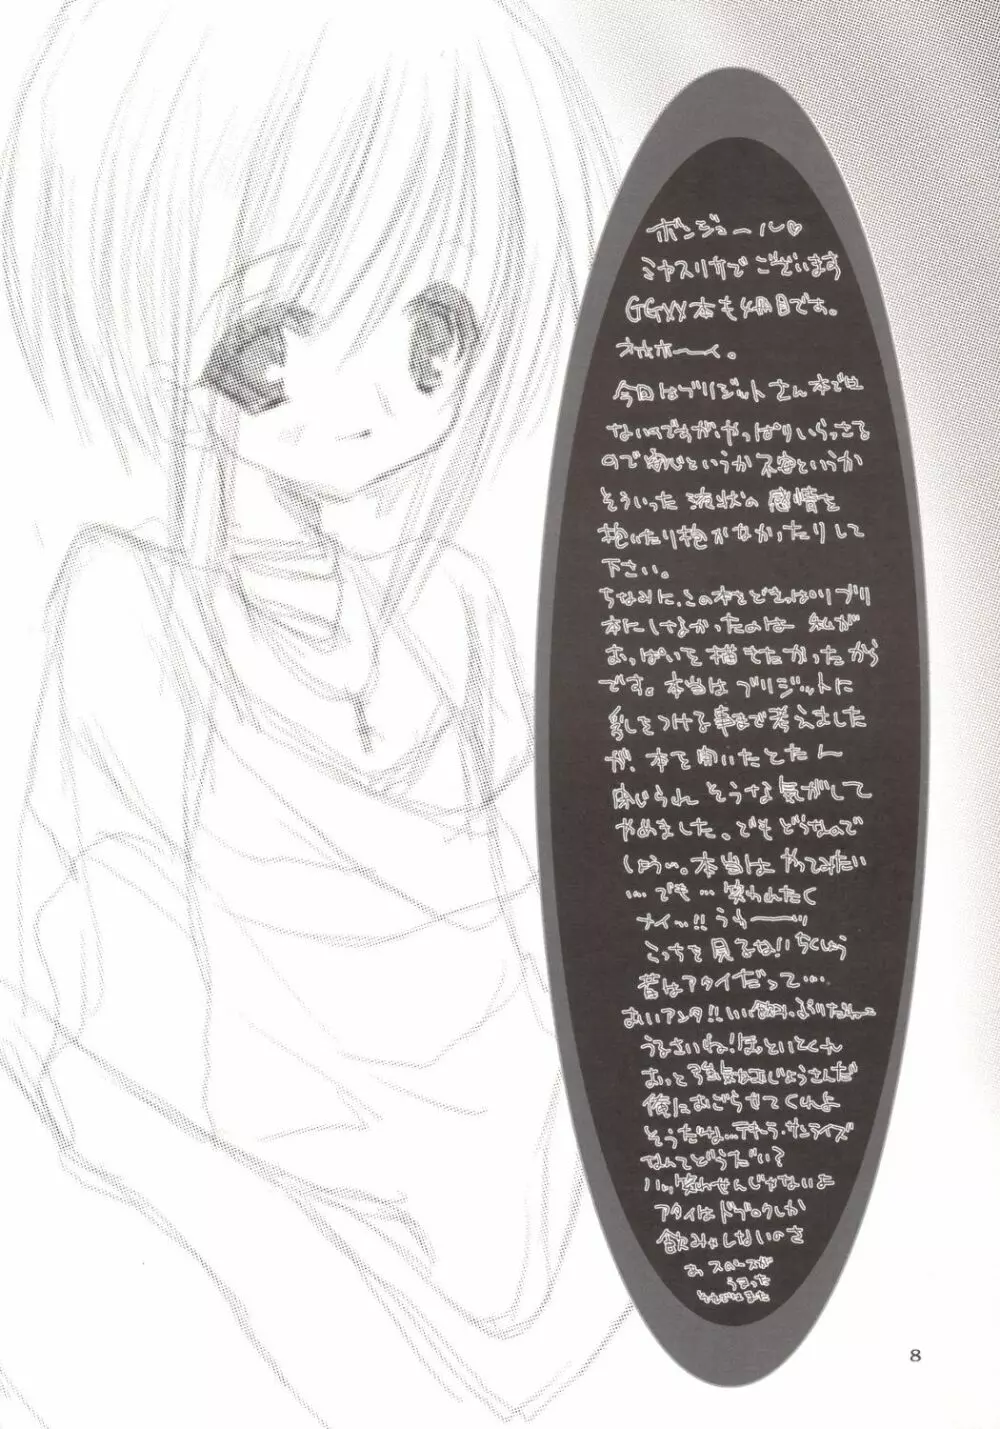 ボンジュール♡
ミヤスリサでございます
GGXX本も4冊目です。
ネオホーイ。
今回はブリジットさん本では
ないのですが、やっぱりいらっさる
ので安心というか不安というか
そういった 流状の 感情を
抱いたり抱かなかったりして
下さい。
ちなみに、この本をどきっぱりブリ
本にしなかったのは 私が
おっぱいを描きたかったから
です。本当は ブリジットに
乳をつける事まで考えました
が、本を開いたとたん
閉じられ そうな気がして
やめました。でもどうなので
しょう…。本当は やってみたい
…でも…笑われたく
ナイッ!!うわーーッ
こっちを見るな!!ちくしょう
昔はアタイだって…
おいアンタ!!いい飲みっぷりだねェ
うるさいね!ほっといとくれ
おっと 強気なおじょうさんだ
俺におごらせてくれよ
そうだな…テキーラ・サンライズ
なんてどうだい?
ハッ、笑わせんじゃないよ
アタイはドブロクしか
飲みゃしないのさ
あ スペースが
うまった
それではまた
8